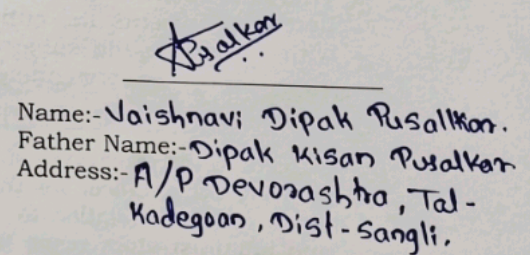 Pusalkar
Name:- Vaishnavi Dipak Pusallkar.
Father Name:- Dipak Kisan Pusalkar
Address:- A/P Devorashtra, Tal-
Kadegoan, Dist-Sangli.